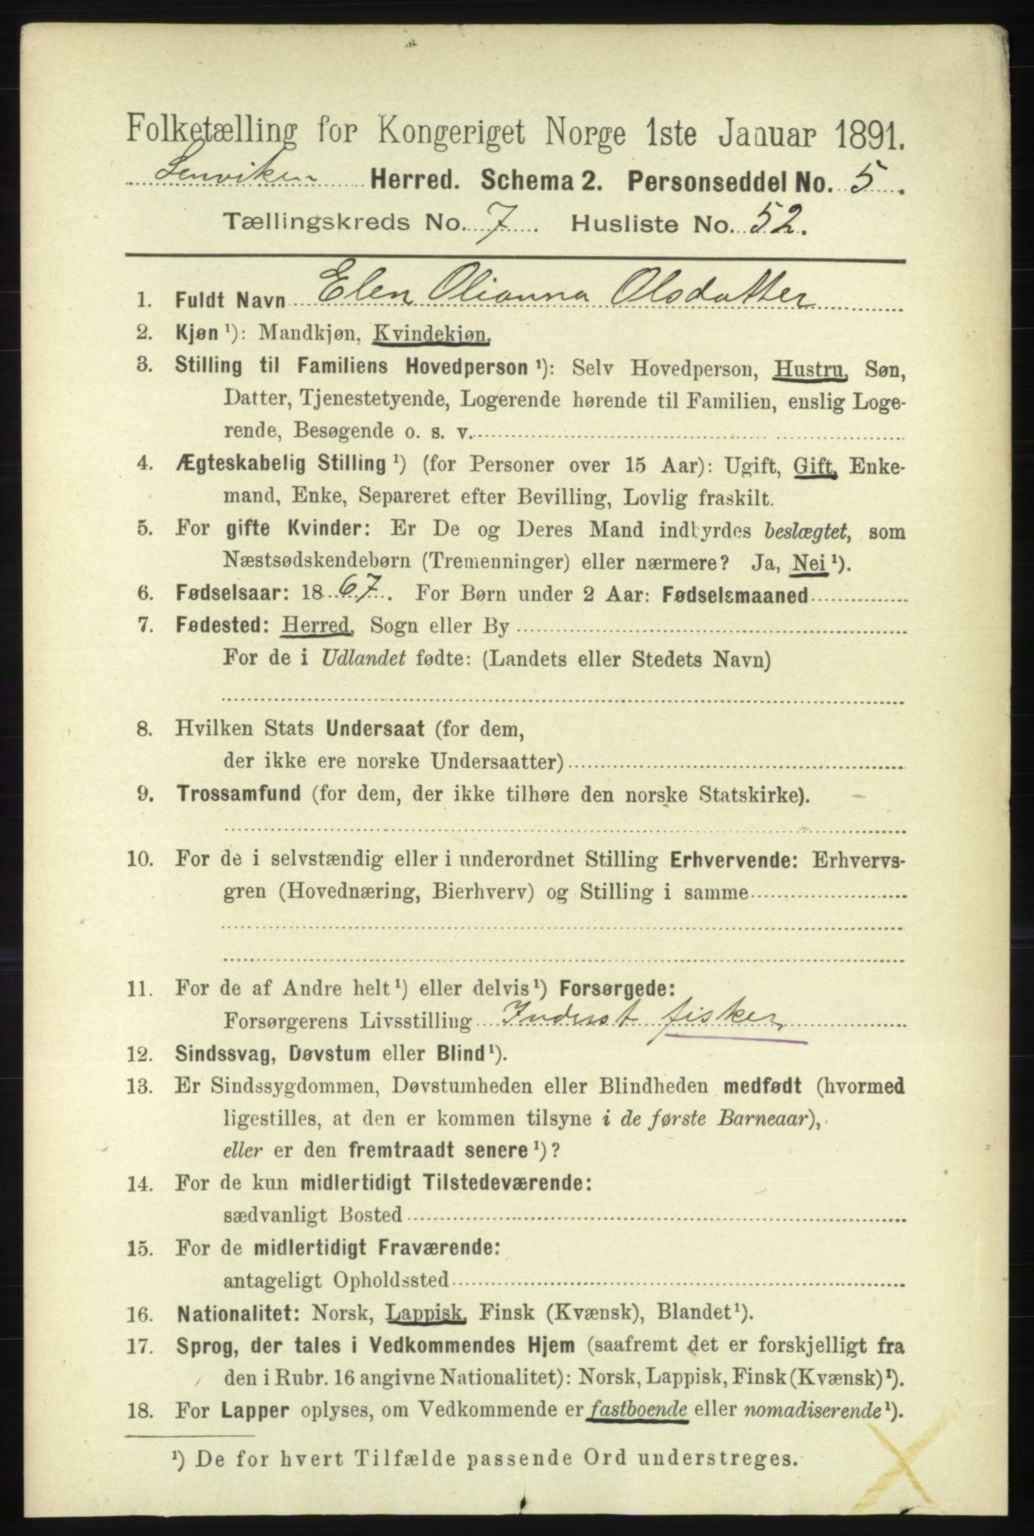 Folketælling for Kongeriget Norge 1ste Januar 1891.
Lenviken Herred. Schema 2. Personseddel No. 5.
Tællingskreds No. 7. Husliste No. 52.
1. Fuldt Navn Elen Olianna Olsdatter
2. Kjøn ¹): Mandkjøn, Kvindekjøn.
3. Stilling til Familiens Hovedperson ¹): Selv Hovedperson, Hustru, Søn,
Datter, Tjenestetyende, Logerende hørende til Familien, enslig Loge-
rende, Besøgende o. s. v.
4. Ægteskabelig Stilling ¹) (for Personer over 15 Aar): Ugift, Gift, Enke-
mand, Enke, Separeret efter Bevilling, Lovlig fraskilt.
5. For gifte Kvinder: Er De og Deres Mand indbyrdes beslægtet, som
Næstsødskendebørn (Tremenninger) eller nærmere? Ja, Nei ¹).
6. Fødselsaar: 1867. For Børn under 2 Aar: Fødselsmaaned
7. Fødested: Herred, Sogn eller By
For de i Udlandet fødte: (Landets eller Stedets Navn)
8. Hvilken Stats Undersaat (for dem,
der ikke ere norske Undersaatter)
9. Trossamfund (for dem, der ikke tilhøre den norske Statskirke).
10. For de i selvstændig eller i underordnet Stilling Erhvervende: Erhvervs-
gren (Hovednæring, Bierhverv) og Stilling i samme
11. For de af Andre helt ¹) eller delvis ¹) Forsørgede:
Forsørgerens Livsstilling Inderst fisker
12. Sindssvag, Døvstum eller Blind ¹).
13. Er Sindssygdommen, Døvstumheden eller Blindheden medfødt (hvormed
ligestilles, at den er kommen tilsyne i de første Barneaar),
eller er den fremtraadt senere ¹)?
14. For de kun midlertidigt Tilstedeværende:
sædvanligt Bosted
15. For de midlertidigt Fraværende:
antageligt Opholdssted
16. Nationalitet: Norsk, Lappisk, Finsk (Kvænsk), Blandet ¹).
17. Sprog, der tales i Vedkommendes Hjem (saafremt det er forskjelligt fra
den i Rubr. 16 angivne Nationalitet): Norsk, Lappisk, Finsk (Kvænsk) ¹).
18. For Lapper oplyses, om Vedkommende er fastboende eller nomadiserende ¹).
¹) De for hvert Tilfælde passende Ord understreges.